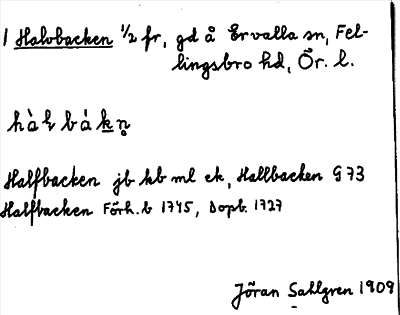 1 Halvbacken 1/2 fr, gd å Ervalla sn, Fel-
lingsbro hd, Ör. l.
Halfbacken jb kb ml ek, Hallbacken G 73
Halfbacken Förh. b 1745, Dopb. 1727
Jöran Sahlgren 1909